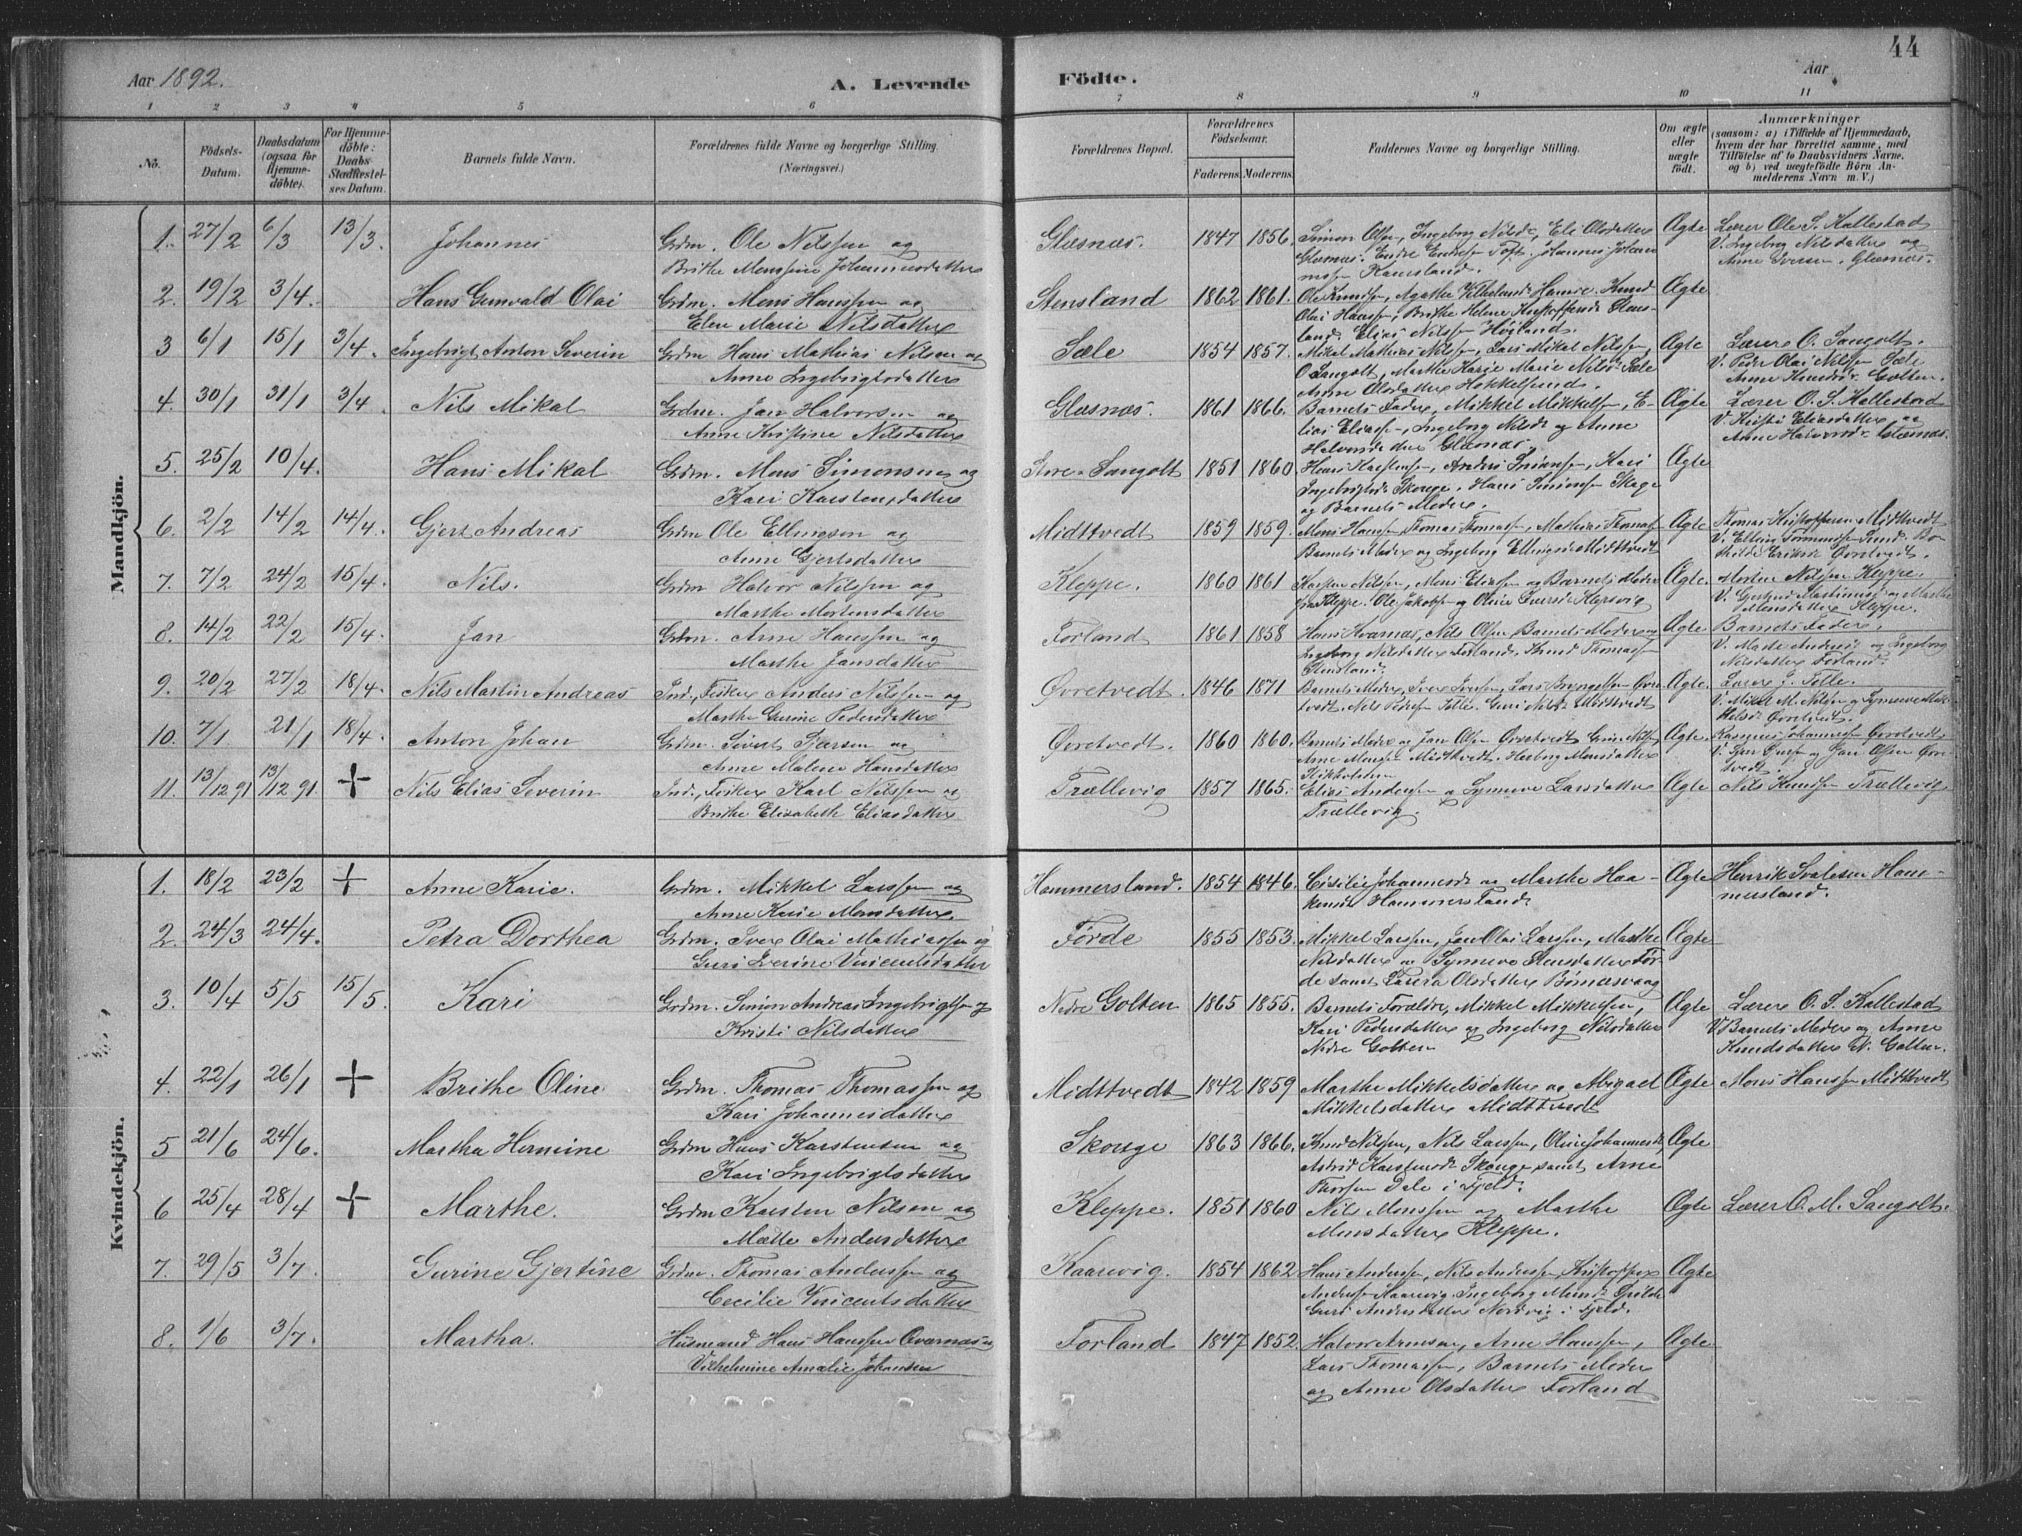 44
Aar 1892.
A. Levende
Fødte.
Aar
1 2 3 4 5 6 7 8 9 10 11
No.
Fødsels-Datum.
Daabsdatum (ogsaa for Hjemme-døbte).
For Hjemme-døbte: Daabs-Stadfæstel-ses Datum.
Barnets fulde Navn.
Forældrenes fulde Navne og borgerlige Stilling. (Næringsvei.)
Forældrenes Bopæl.
Forældrenes Fødselsaar.
Faderens. Moderens.
Faddernes Navne og borgerlige Stilling.
Om ægte eller uægte født.
Anmærkninger (saasom: a) i Tilfælde af Hjemmedaab, hvem der har forrettet samme, med Tilføielse af to Daabsvidners Navne, og b) ved uægtefødte Børn An-melderens Navn m. V.)
Mandkjön.
1. 27/2 6/3 13/3. Johannes Grdm. Ole Nilssen og Brithe Monsine Johannesdatter Glæsnæs. 1847 1856. Simon Olsen, Ingeborg Nilsd., Eli Olsdatter Glæsnæs. Endre Endresen Toft. Johannes Johannessen Kausland. Ægte Lærer Ole S. Kallestad V. Ingeborg Nilsdatter og Anne Iversen. Glæsnæs.
2. 19/2 3/4. Hans Gunvald Olai Grdm. Mons Hanssen og Elen Marie Nilsdatter Stensland 1862 1861. Ole Knudsen, Agathe Olai Hanssen, Brithe Helene Elias Nilssen Høgland. Ægte
3 6/1 15/1 3/4. Ingebrigt Anton Severin Grdm. Hans Mathias Nilsen og Anne Ingebrigtsdatter Sæle 1854 1857. Mikal Mathias Nilssen, Lars Mikal Nilssen, O Sangolt, Marthe Karie Marie Nilsd. Sæle Anne Olsdatter Ægte Lærer O. Sangolt. V. Peder Olai Nilssen Sæle Anne Knudsd. Golten.
4. 30/1 31/1 3/4. Nils Mikal Grdm. Jan Halvorsen og Anne Kristine Nilsdatter Glæsnæs. 1861 1866. Barnets Fader, Mikkel Mikkelsen, Elias Eliassen, Ingeborg Nilsd. og Anne Halvorsdatter Glæsnæs. Ægte Lærer O. S. Kallestad V. Kristi Eliasdatter og Anne Halvorsd. Glæsnæs.
5. 25/2 10/4. Hans Mikal Grdm. Mons Simonsen og Kari Karstensdatter Sangolt 1851 1860 Hans Karstensen, Anders Simonsen, Kari Ingebrigtsd. Skouge. Hans Simonsen Skage og Barnets Moder. Ægte
6. 2/2 14/2 14/4. Gjert Andreas Grdm Ole Ellingsen og Anne Gjertsdatter Midttvedt 1859 1859. Mons Hanssen, Thomas Thomassen, Mathias Thomassen Barnets Moder og Ingeborg Midttvedt Ægte Thomas Kristoffersen Midttvedt V. Elling Tormundsen Sund. Øvretvedt.
7. 7/2 24/2 15/4. Nils. Grdm Halvor Nilssen og Marthe Mortensdatter Kleppe. 1860 1861 Karsten Nilssen, Mons Eliassen og Barnets Moder fra Kleppe. Ole Jakobsen og Oline Iversd. Ægte. Morten Nilssen Kleppe. V. og Marthe Monsdatter Kleppe.
8. 14/2 22/2 15/4. Jan Grdm. Arne Hanssen og Marthe Jansdatter Forland 1861 1858 Hans Kvarnæs, Nils Olsen Barnets Moder og Ingeborg Nilsdatter Forland. Knud Thomassen Ægte Barnets Fader. V. Marte Andersd. og Ingeborg Nilsdatter Forland.
9. 20/2 27/2 18/4. Nils Martin Andreas Ind., Fisker Anders Nilssen og Marthe Gurine Pedersdatter Øvretvedt. 1846 1871 Barnets Moder, Iver Iversen, Lars Øvretvedt. Nils Pedersen Telle. Guri Nilsd. Midttvedt Ægte. Lærer J. Telle. V. Mikkel M. Nilssen og Synneve Mikkelsd. Øvretvedt.
10. 7/1 21/1 18/4. Anton Johan Grdm. Sivert og Anne Malene Hansdatter Øvretvedt. 1860 1860. Barnets Moder og Jan Olsen Øvretvedt Anne Monsen Midttvedt. Herborg Monsdatter Ægte. Rasmus Johannessen Øvretvedt. V. og Jan Olsen Øvretvedt
11. 13/12 91 13/12 91 + Nils Elias Severin Ind., Fisker Karl Nilssen og Brithe Elisabeth Eliasdatter Trællevig 1857 1865. Elias Andersen og Synneve Larsdatter Trællevig. Ægte Nils Knudsen Trællevig.
Kvindekjön.
1. 18/2 23/2 + Anne Karie. Grdm. Mikkel Larssen og Anne Karie Monsdatter. Hammersland. 1854 1846. Cicilie Johannesd. og Marthe Haakensd. Hammersland. Ægte Henrik Hammersland.
2. 24/3 24/4. Petra Dorthea Grdm. Iver Olai Mathiassen og Guri Iverine Vincentsdatter Førde 1855 1853. Mikkel Larssen, Jan Olai Larssen, Marthe Nilsdatter og Synneve Førde samt Laura Olsdatter Ægte
3. 10/4 5/5 15/5. Kari Grdm. Simon Andreas Ingebrigtsen og Kristi Nilsdatter Nedre Golten 1865 1855. Barnets Forældre, Mikkel Mikkelsen, Kari Pedersdatter og Ingeborg Nilsdatter Nedre Golten Ægte Lærer O. S. Kallestad V. Barnets Moder og Anne Knudsdatter N. Golten.
4. 22/1 26/1 + Brithe Oline Grdm. Thomas Thomassen og Kari Johannesdatter Midttvedt 1842 1859 Marthe Mikkelsdatter og Abigael Mikkelsdatter Midttvedt Ægte Mons Hanssen Midttvedt
5 21/6 24/6. Martha Hermine Grdm Hans Karstensen og Kari Ingebrigtsdatter Skouge 1863 1866. Knud Nilssen, Nils Larssen, Oline Johannesd., Astrid Karstensd. Skouge samt Arne Thorsen Dale i Fjeld. Ægte
6 25/4 28/4 + Marthe. Grdm Karsten Nilsen og Mætte Andersdatter Kleppe. 1851 1860 Nils Monssen og Marthe Monsdatter Kleppe. Ægte Lærer O. M. Sangolt.
7. 29/5 3/7. Gurine Gjertine Grdm. Thomas Anderssen og Cecilie Vincentsdatter Kaarevig. 1854 1862 Hans Anderssen, Nils Anderssen, Kristoffer Anderssen Kaarevig. Ingeborg Guri Andersdatter Nordvig i Fjeld. Ægte
8. 1/6 3/7. Martha. Husmand Hans Hanssen Kvarnæs og Vilhelmine Amalie Johansen Forland 1847 1852. Halvor Arnesen, Arne Hanssen, Lars Thomassen, Barnets Moder og Anne Olsdatter Forland Ægte.